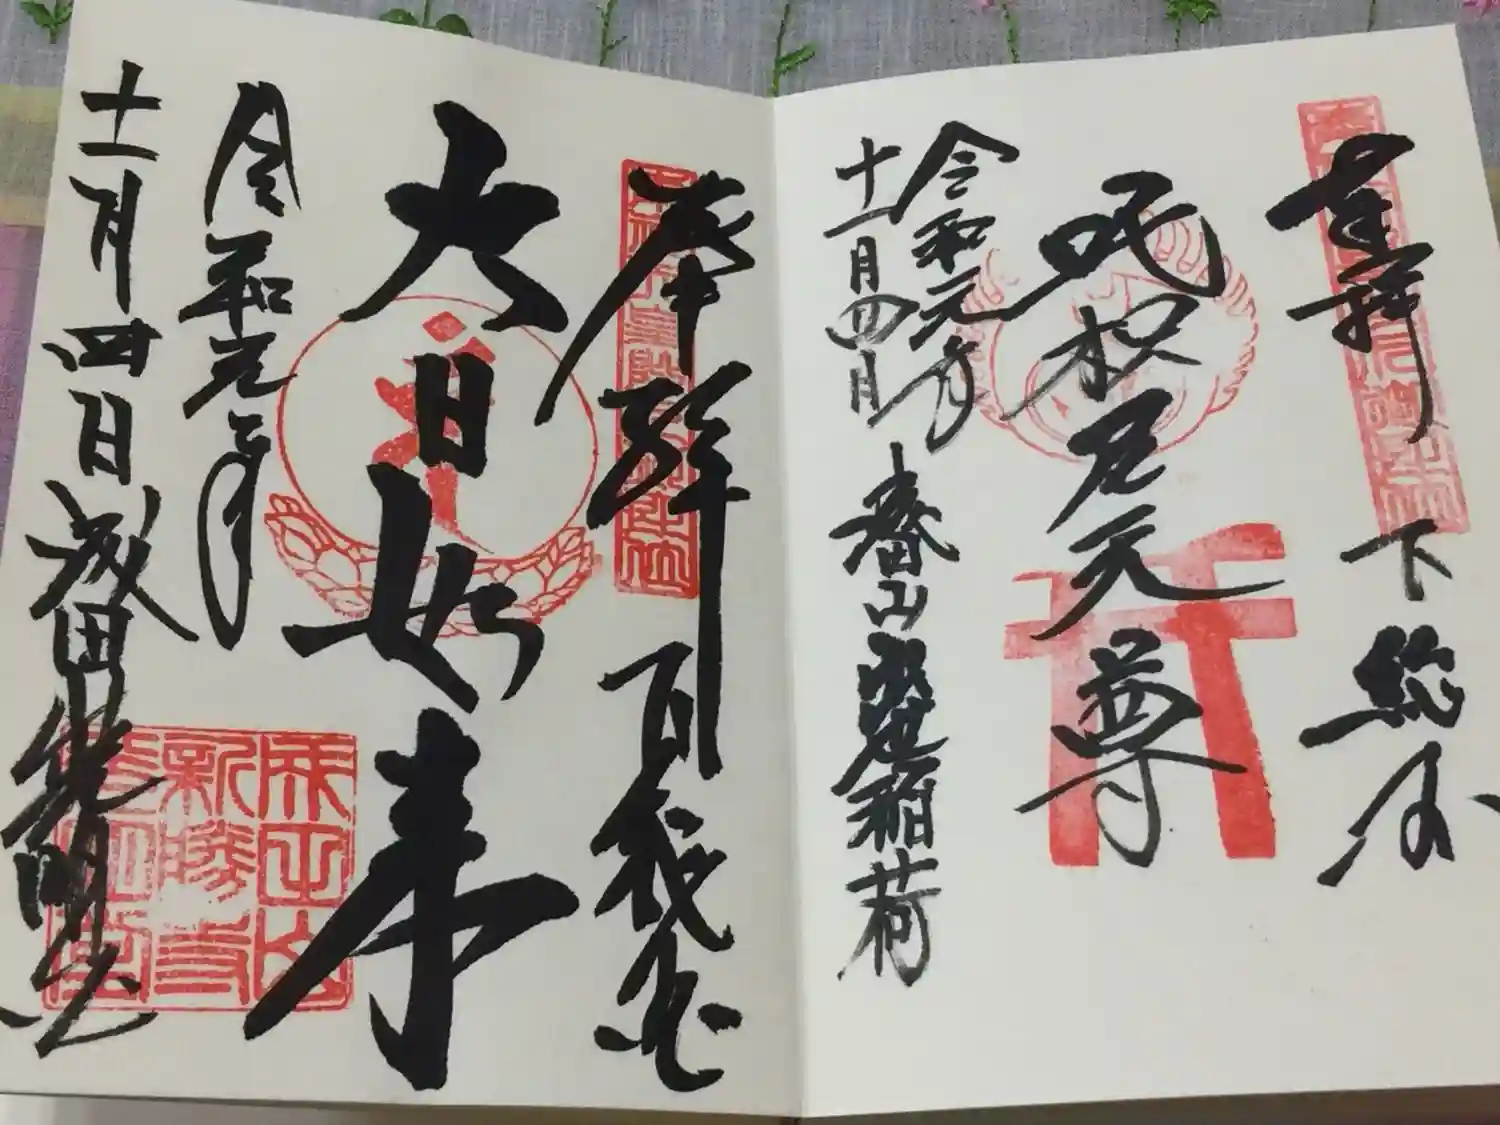 奉拝 下総国
吒枳尼天尊
令和元年
十一月四日 成田山出世稲荷
奉拝
大日如来
令和元年
十一月四日 成田山光明堂
成田山
新勝寺
光明堂